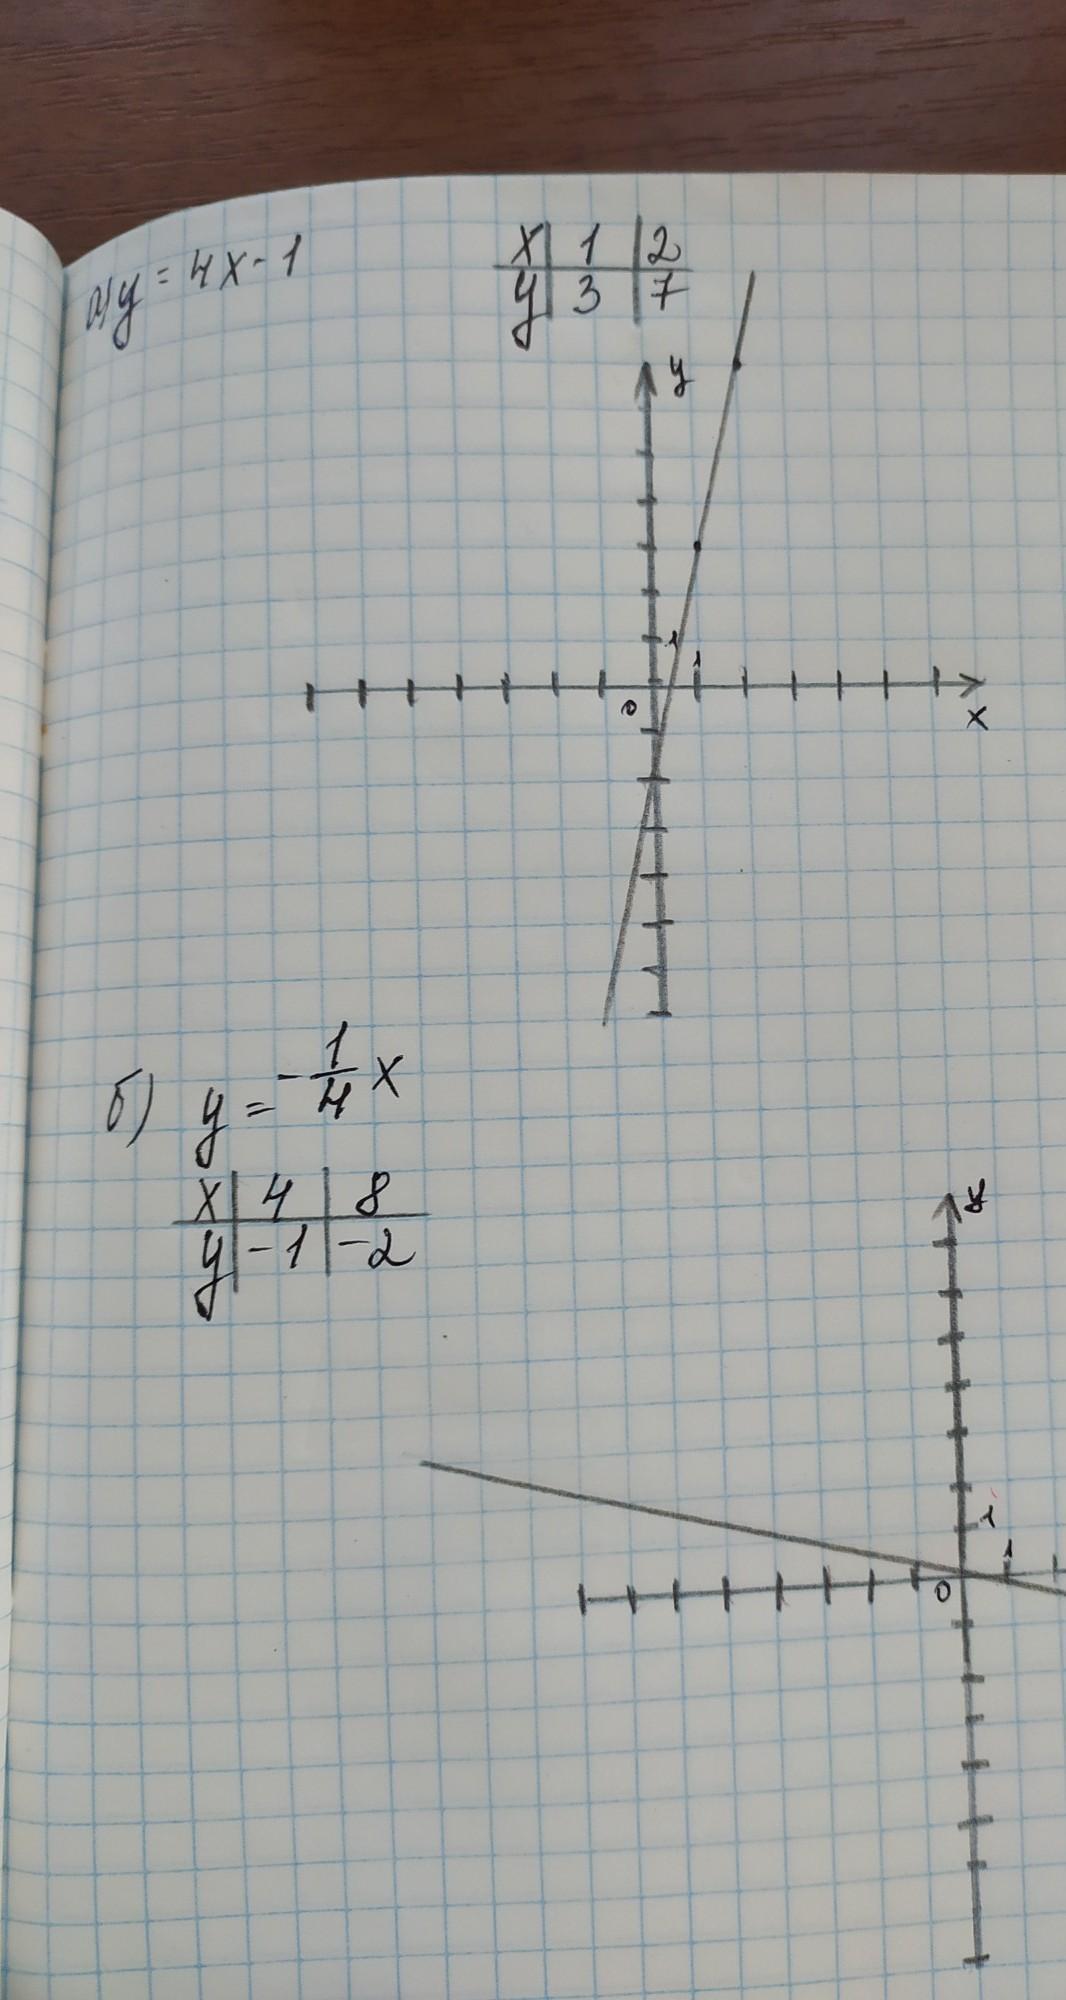 а) y = 4x - 1
x | 1 | 2
y | 3 | 7
y
1
1
0
x
б) y = -1/4 x
x | 4 | 8
y | -1 | -2
y
1
1
0